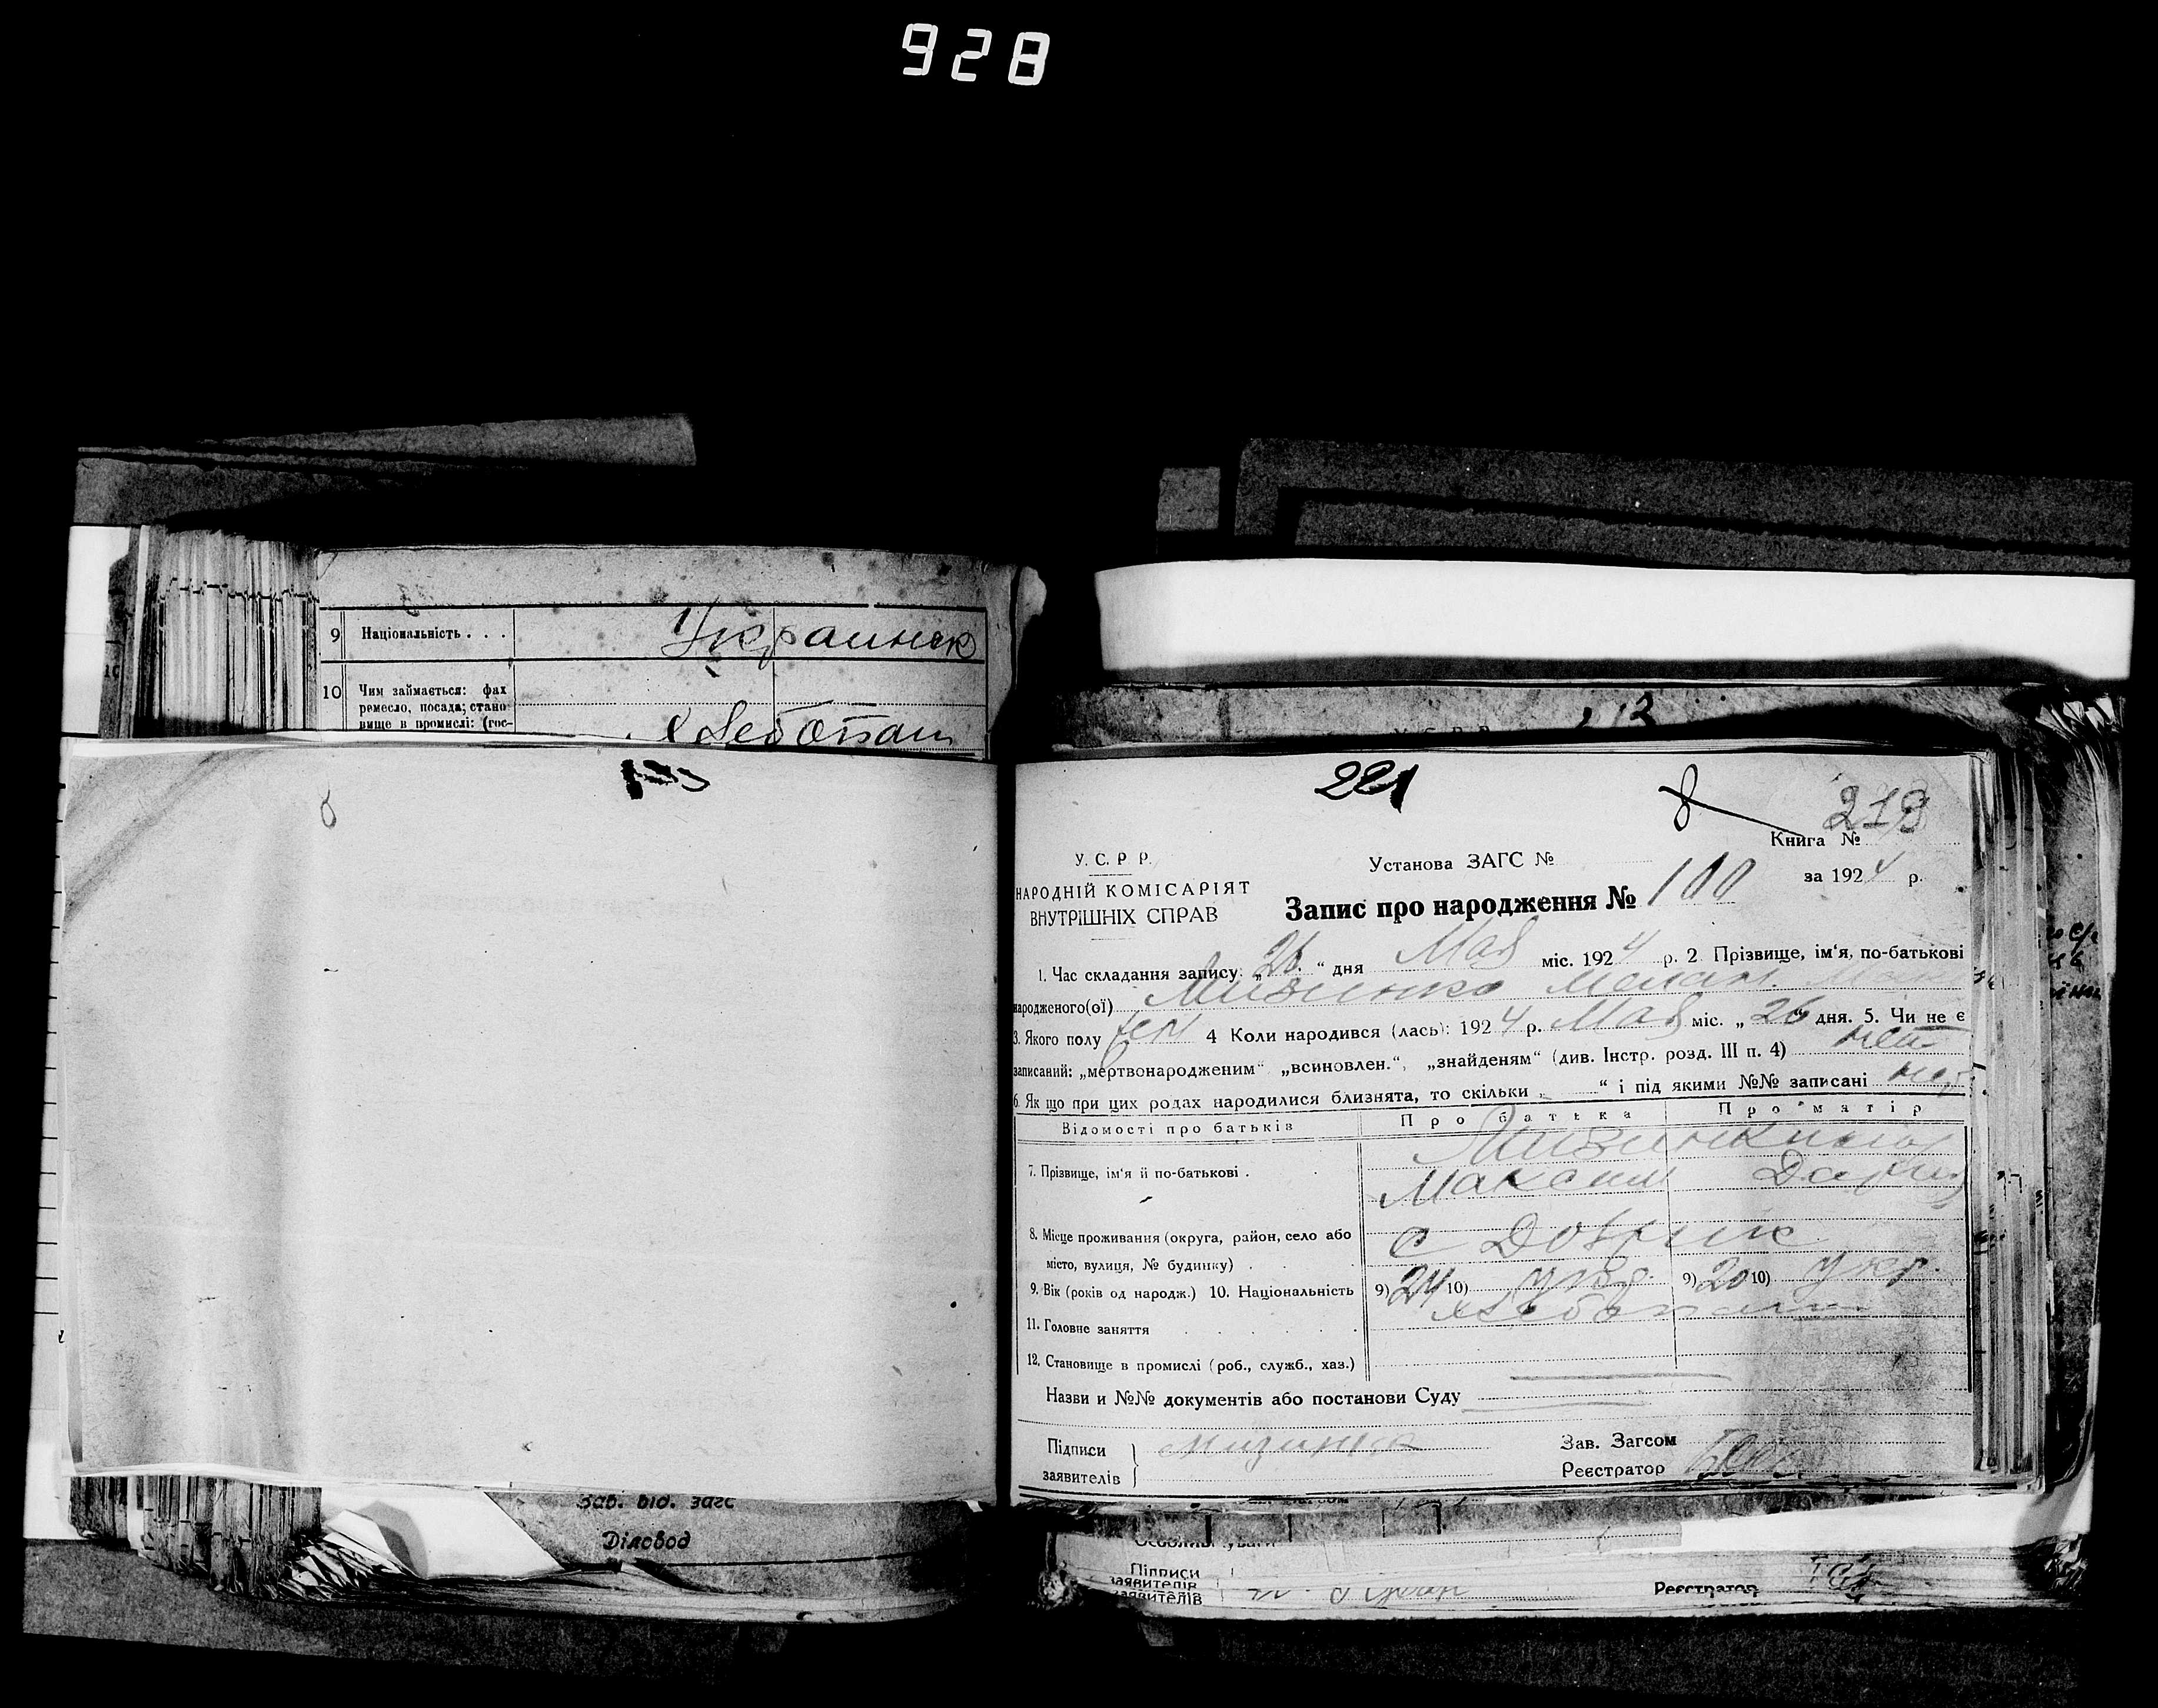 928
9 Національність . . .
Украинск
10 Чим займається: фах
ремесло, посада; стано-
вище в промислі: (гос-
хлебопаш
Зав. від. загс
Діловод
221
219
Книга №
У. С. Р. Р.
Установа ЗАГС №
НАРОДНІЙ КОМІСАРІЯТ
за 1924 р.
ВНУТРІШНІХ СПРАВ
Запис про народження № 100
1. Час складання запису: „26.“ дня Мая міс. 1924 р. 2. Прізвище, ім'я, по-батькові
народженого(ої) Мизинко
3. Якого полу жен 4 Коли народився (лась): 1924 р. Мая міс. „26 дня. 5. Чи не є
записаний: „мертвонародженим“ „всиновлен.“, „знайденям“ (див. Інстр. розд. III п. 4) нет
6. Як що при цих родах народилися близнята, то скільки „ “ і під якими №№ записані нет
Відомості про батьків
Про батька
Про матір
7. Прізвище, ім'я й по-батькові .
Максим
8. Місце проживання (округа, район, село або
місто, вулиця, № будинку) .
с
9. Вік (років од народж.) 10. Національність 9) 24 10) укр. 9) 20 10) укр.
11. Головне заняття
хлебопаш
12. Становище в промислі (роб., служб., хаз.)
Назви и №№ документів або постанови Суду
Підписи
заявителів
Мизинко
Зав. Загсом
Реєстратор
Підписи
заявителів
заявителів
Реєстратор